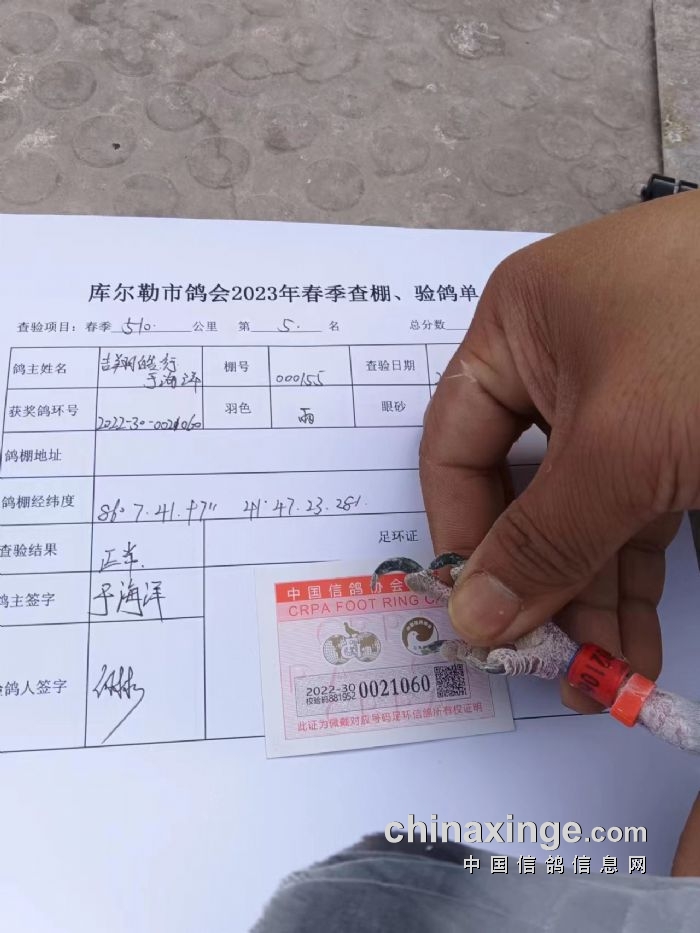 库尔勒市鸽会2023年春季查棚、验鸽单
查验项目：春季 510. 公里 第 5. 名 总分数
鸽主姓名 于海洋 棚号 000155 查验日期 2
获奖鸽环号 2022-30-0021060 羽色 雨 眼砂
鸽棚地址
鸽棚经纬度 86°7.41.97" 41°47.23.281.
查验结果 正常. 足环证
鸽主签字 于海洋
验鸽人签字
中国信鸽协会
CRPA FOOT RING CA
2022-30
校验码881952
0021060
此证为佩戴对应号码足环信鸽所有权证明
chinaxinge.com
中国信鸽信息网